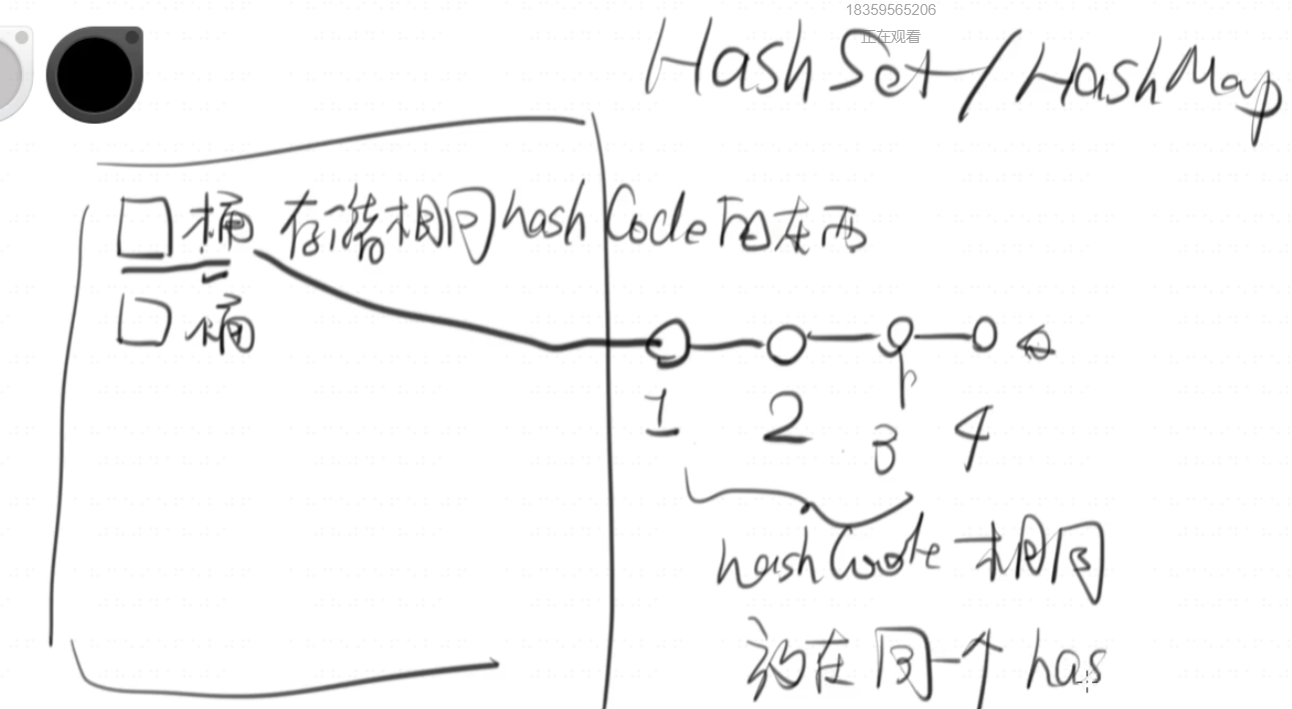 18359565206
正在观看
HashSet/HashMap
桶 存储相同hashCode的东西
桶
1 2 3 4
hashCode 相同
放在同一个has